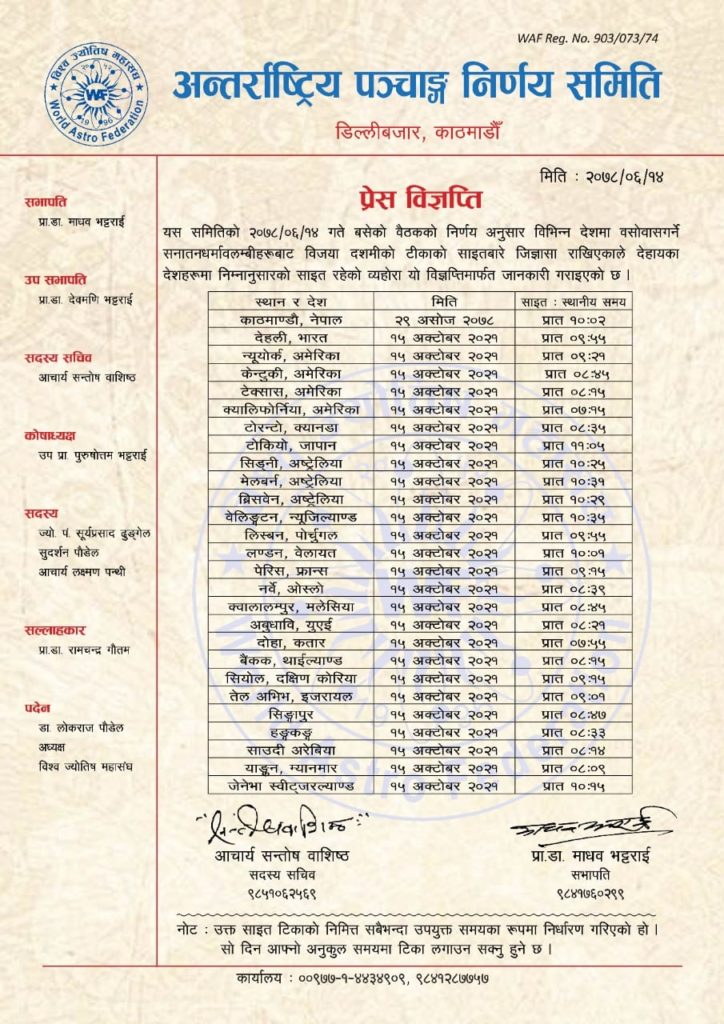 WAF Reg. No. 903/073/74
विश्व ज्योतिष महासंघ
WAF
1996
World Astro Federation
अन्तर्राष्ट्रिय पञ्चाङ्ग निर्णय समिति
डिल्लीबजार, काठमाडौँ
मिति : २०७८/०६/१४
सभापति
प्रा.डा. माधव भट्टराई
उप सभापति
प्रा.डा. देवमणि भट्टराई
सदस्य सचिव
आचार्य सन्तोष वाशिष्ठ
कोषाध्यक्ष
उप प्रा. पुरुषोत्तम भट्टराई
सदस्य
ज्यो. पं. सूर्यप्रसाद ढुङ्गेल
सुदर्शन पौडेल
आचार्य लक्ष्मण पन्थी
सल्लाहकार
प्रा.डा. रामचन्द्र गौतम
पदेन
डा. लोकराज पौडेल
अध्यक्ष
विश्व ज्योतिष महासंघ
प्रेस विज्ञप्ति
यस समितिको २०७८/०६/१४ गते बसेको वैठकको निर्णय अनुसार विभिन्न देशमा वसोवासगर्ने
सनातनधर्मावलम्बीहरूबाट विजया दशमीको टीकाको साइतबारे जिज्ञासा राखिएकाले देहायका
देशहरूमा निम्नानुसारको साइत रहेको व्यहोरा यो विज्ञप्तिमार्फत जानकारी गराइएको छ ।
स्थान र देश मिति साइत : स्थानीय समय
काठमाण्डौ, नेपाल २९ असोज २०७८ प्रात १०:०२
देहली, भारत १५ अक्टोबर २०२१ प्रात ०९:५५
न्यूयोर्क, अमेरिका १५ अक्टोबर २०२१ प्रात ०९:२१
केन्टुकी, अमेरिका १५ अक्टोबर २०२१ प्रात ०८:४५
टेक्सास, अमेरिका १५ अक्टोबर २०२१ प्रात ०८:१५
क्यालिफोर्निया, अमेरिका १५ अक्टोबर २०२१ प्रात ०७:१५
टोरन्टो, क्यानडा १५ अक्टोबर २०२१ प्रात ०८:३५
टोकियो, जापान १५ अक्टोबर २०२१ प्रात ११:०५
सिड्नी, अष्ट्रेलिया १५ अक्टोबर २०२१ प्रात १०:२५
मेलबर्न, अष्ट्रेलिया १५ अक्टोबर २०२१ प्रात १०:३१
ब्रिसवेन, अष्ट्रेलिया १५ अक्टोबर २०२१ प्रात १०:२९
वेलिङ्गटन, न्यूजिल्याण्ड १५ अक्टोबर २०२१ प्रात १०:३५
लिस्बन, पोर्चुगल १५ अक्टोबर २०२१ प्रात ०९:५५
लण्डन, वेलायत १५ अक्टोबर २०२१ प्रात १०:०१
पेरिस, फ्रान्स १५ अक्टोबर २०२१ प्रात ०९:१५
नर्वे, ओस्लो १५ अक्टोबर २०२१ प्रात ०८:३९
क्वालालम्पुर, मलेसिया १५ अक्टोबर २०२१ प्रात ०८:४५
अबुधावि, युएई १५ अक्टोबर २०२१ प्रात ०८:२१
दोहा, कतार १५ अक्टोबर २०२१ प्रात ०७:५५
बैंकक, थाईल्याण्ड १५ अक्टोबर २०२१ प्रात ०८:१५
सियोल, दक्षिण कोरिया १५ अक्टोबर २०२१ प्रात ०९:१५
तेल अभिभ, इजरायल १५ अक्टोबर २०२१ प्रात ०९:०१
सिङ्गापुर १५ अक्टोबर २०२१ प्रात ०८:४७
हङ्कङ्ग १५ अक्टोबर २०२१ प्रात ०८:३३
साउदी अरेबिया १५ अक्टोबर २०२१ प्रात ०८:१४
याङ्गुन, म्यानमार १५ अक्टोबर २०२१ प्रात ०८:०९
जेनेभा स्वीट्जरल्याण्ड १५ अक्टोबर २०२१ प्रात १०:१५
आचार्य सन्तोष वाशिष्ठ
सदस्य सचिव
९८५१०६२५६९
प्रा.डा. माधव भट्टराई
सभापति
९८४१७६०२९९
नोट : उक्त साइत टिकाको निमित्त सबैभन्दा उपयुक्त समयका रूपमा निर्धारण गरिएको हो ।
सो दिन आफ्नो अनुकुल समयमा टिका लगाउन सक्नु हुने छ ।
कार्यालय : ००९७७-१-४४३४९०९, ९८४१२८७७५७